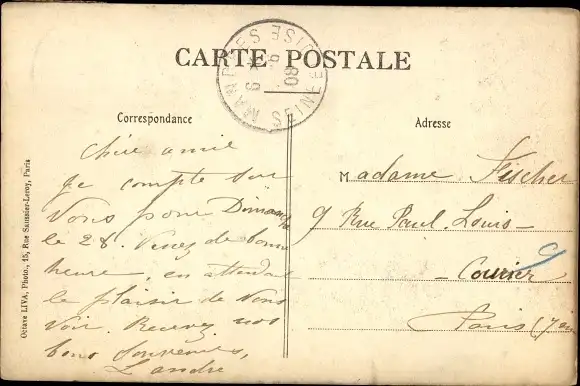 CARTE POSTALE
MANDRES SEINE & OISE
Correspondance
Chère amie
Je compte sur
Vous pour Dimanche
le 28. Venez de bonne
heure, en attendant
le plaisir de vous
voir. Recevez nos
bons souvenirs,
Landré
Adresse
Madame Fischer
9 Rue Paul-Louis-
-Courier
Paris (7en
Octave LIVA, Photo., 45, Rue Saussier-Leroy, Paris